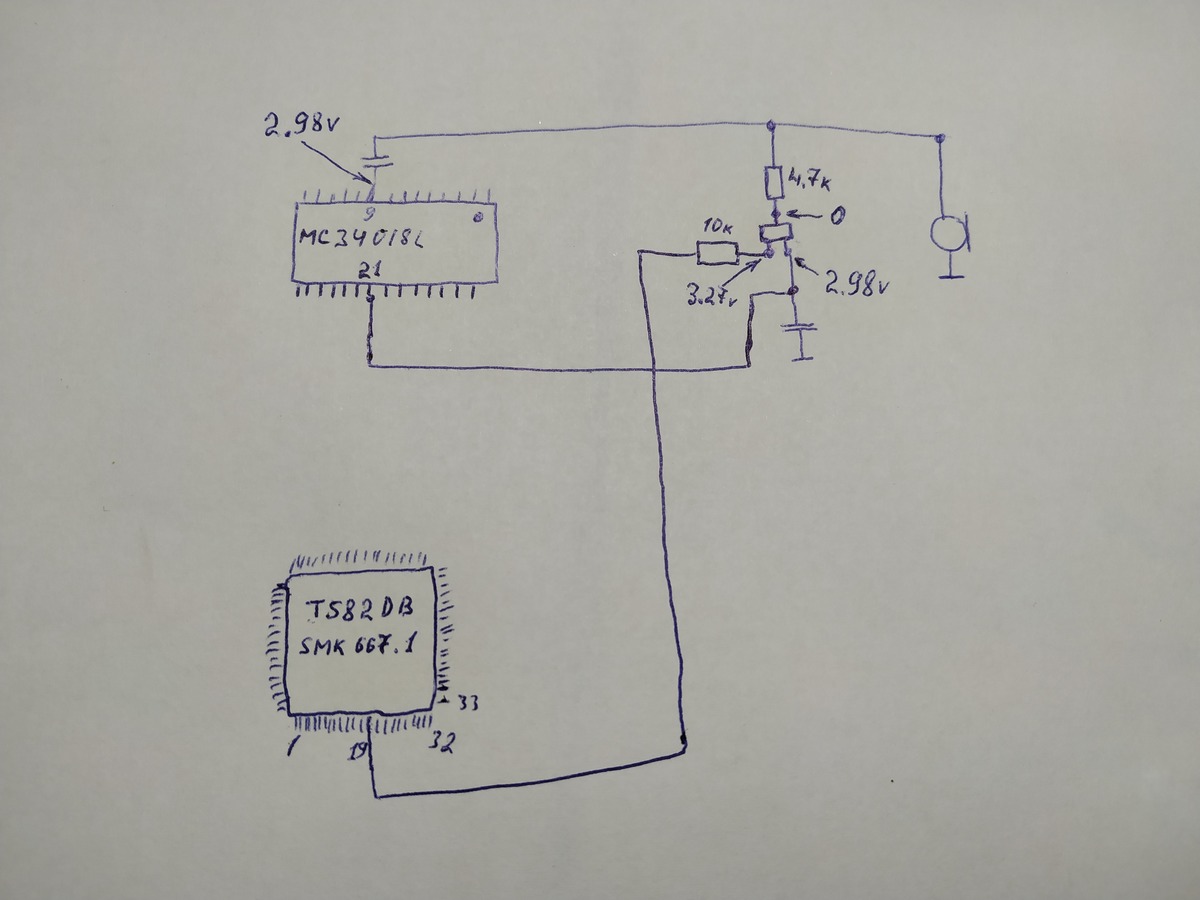 2.98v
4.7k
9
0
10k
MC34018L
21
3.27v
2.98v
T582DB
SMK 667.1
33
1
19
32